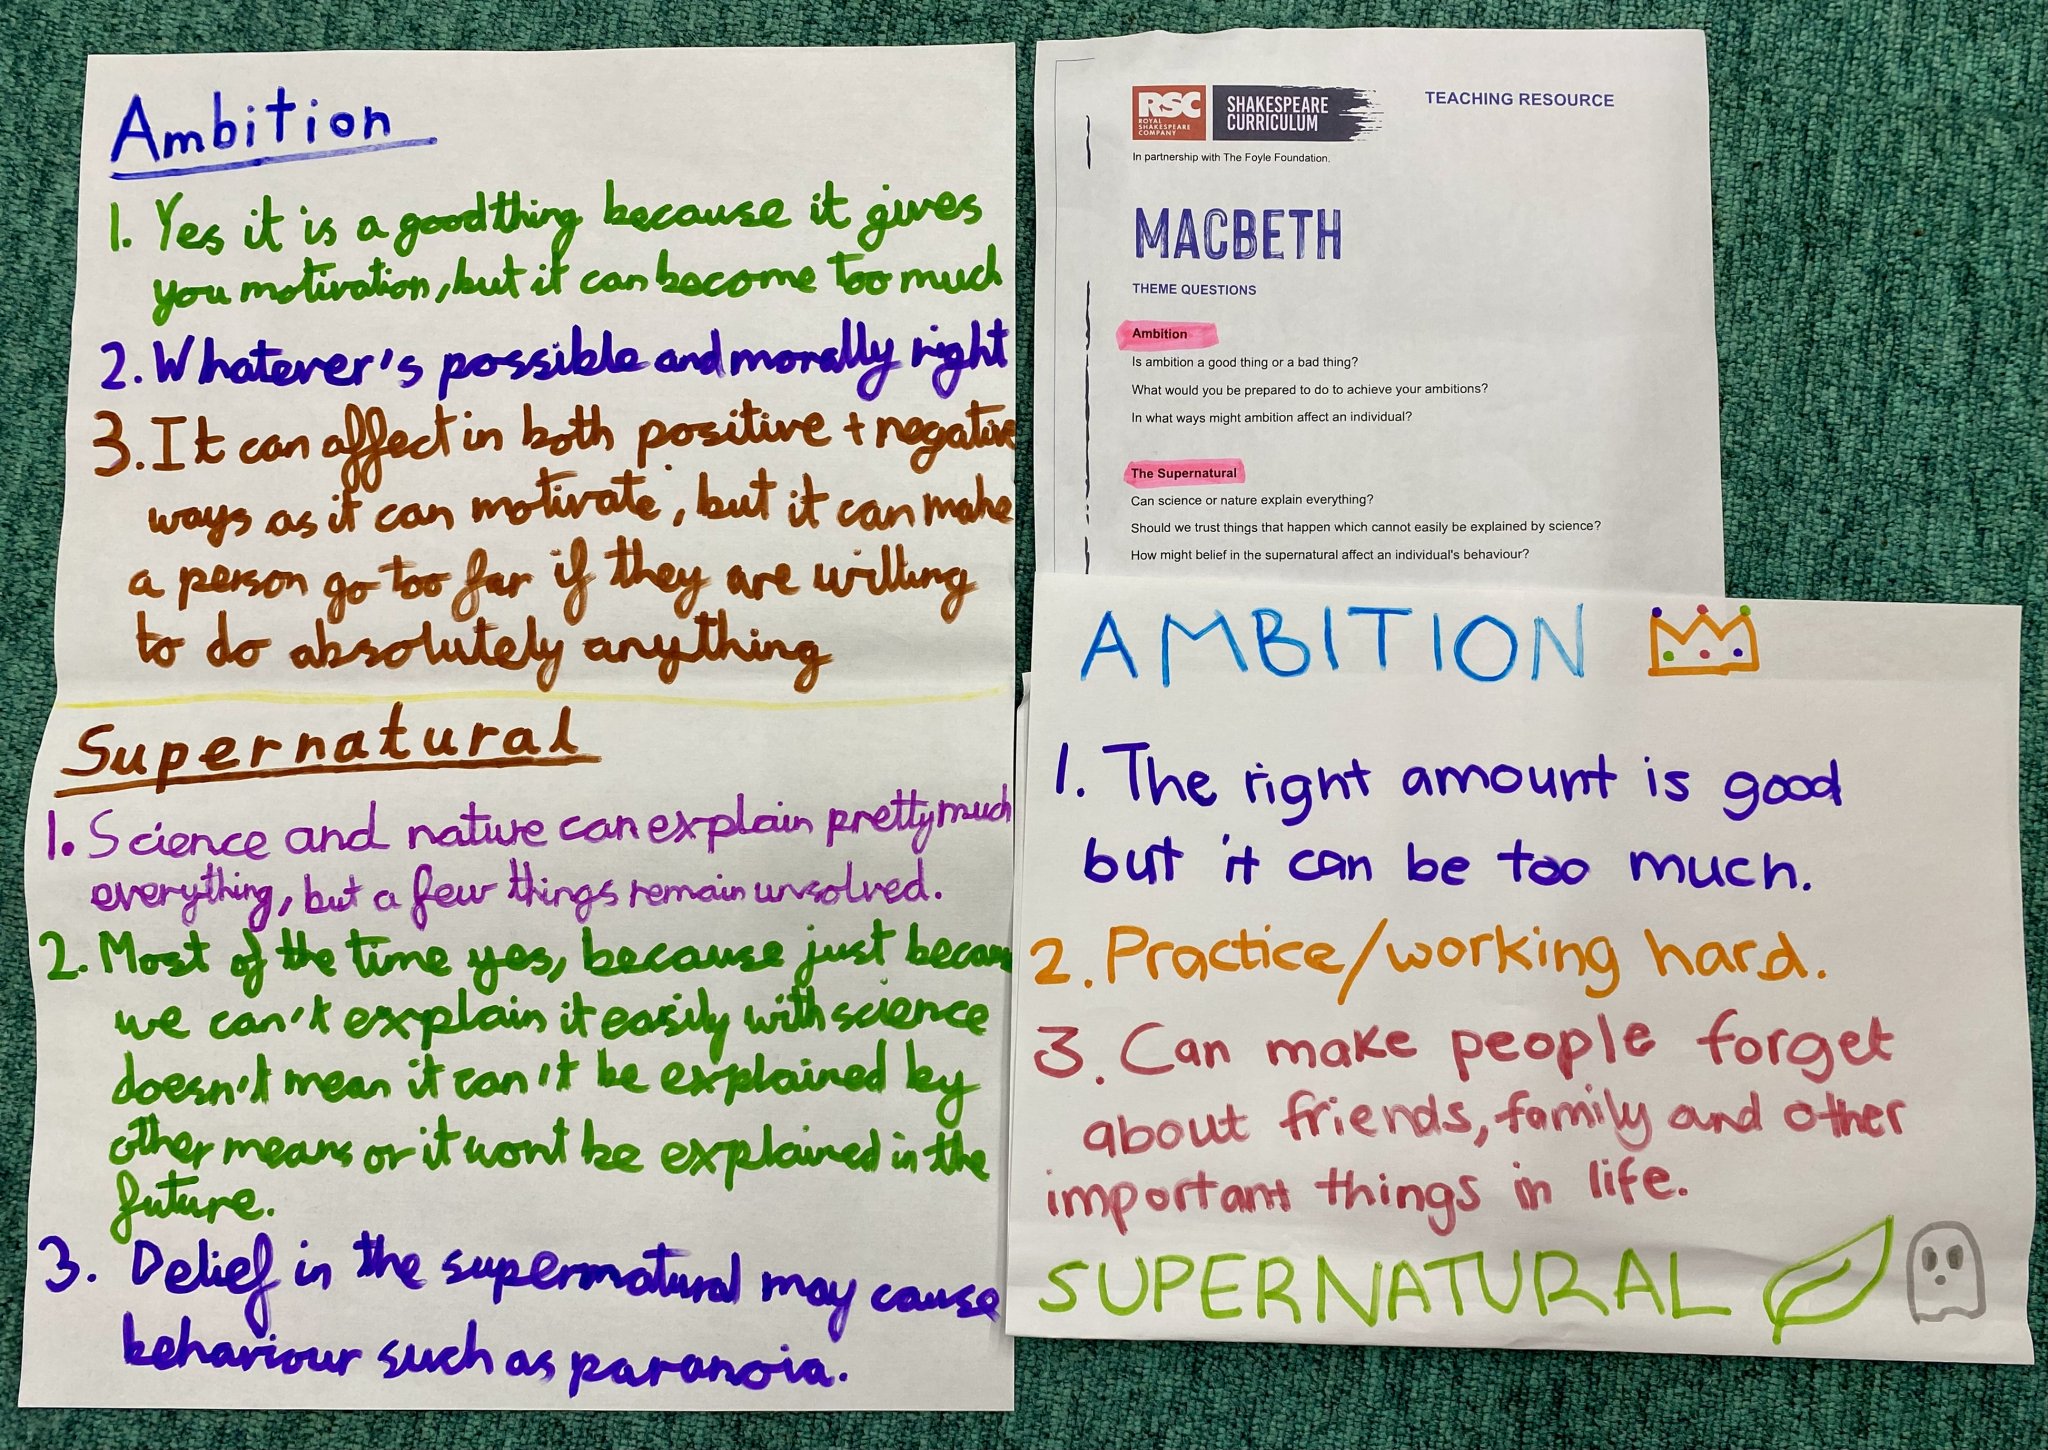 Ambition
1. Yes it is a good thing because it gives
you motivation, but it can become too much
2. Whatever's possible and morally right
3. It can affect in both positive + negative
ways as it can motivate, but it can make
a person go too far if they are willing
to do absolutely anything
Supernatural
1. Science and nature can explain pretty much
everything, but a few things remain unsolved.
2. Most of the time yes, because just because
we can't explain it easily with science
doesn't mean it can't be explained by
other means or it wont be explained in the
future.
3. Belief in the supernatural may cause
behaviour such as paranoia.
RSC
ROYAL
SHAKESPEARE
COMPANY
SHAKESPEARE
CURRICULUM
TEACHING RESOURCE
In partnership with The Foyle Foundation.
MACBETH
THEME QUESTIONS
Ambition
Is ambition a good thing or a bad thing?
What would you be prepared to do to achieve your ambitions?
In what ways might ambition affect an individual?
The Supernatural
Can science or nature explain everything?
Should we trust things that happen which cannot easily be explained by science?
How might belief in the supernatural affect an individual's behaviour?
AMBITION
1. The right amount is good
but it can be too much.
2. Practice/working hard.
3. Can make people forget
about friends, family and other
important things in life.
SUPERNATURAL